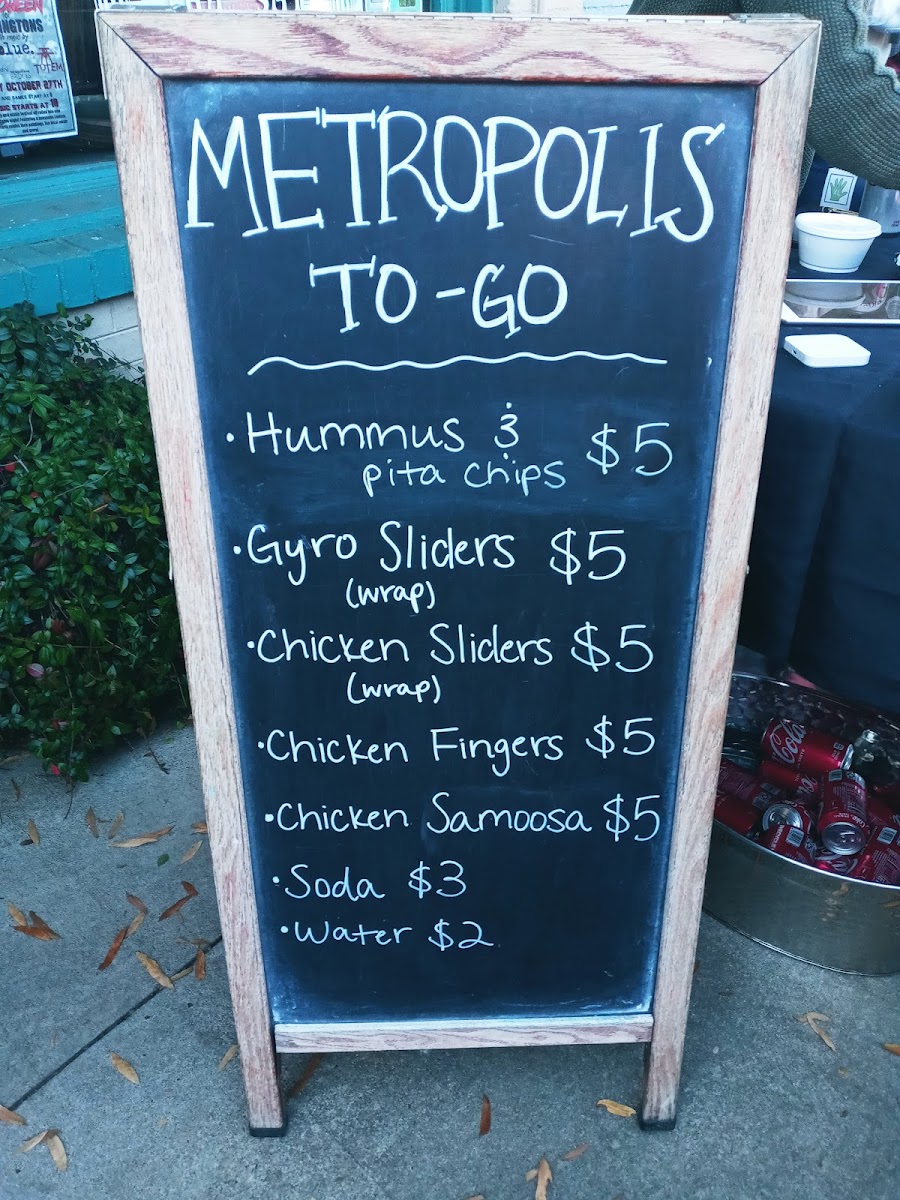 INGTONS
TOTEM
OCTOBER 27TH
METROPOLIS
TO-GO
·Hummus &
pita chips $5
·Gyro Sliders $5
(wrap)
·Chicken Sliders $5
(wrap)
·Chicken Fingers $5
·Chicken Samoosa $5
·Soda $3
·Water $2